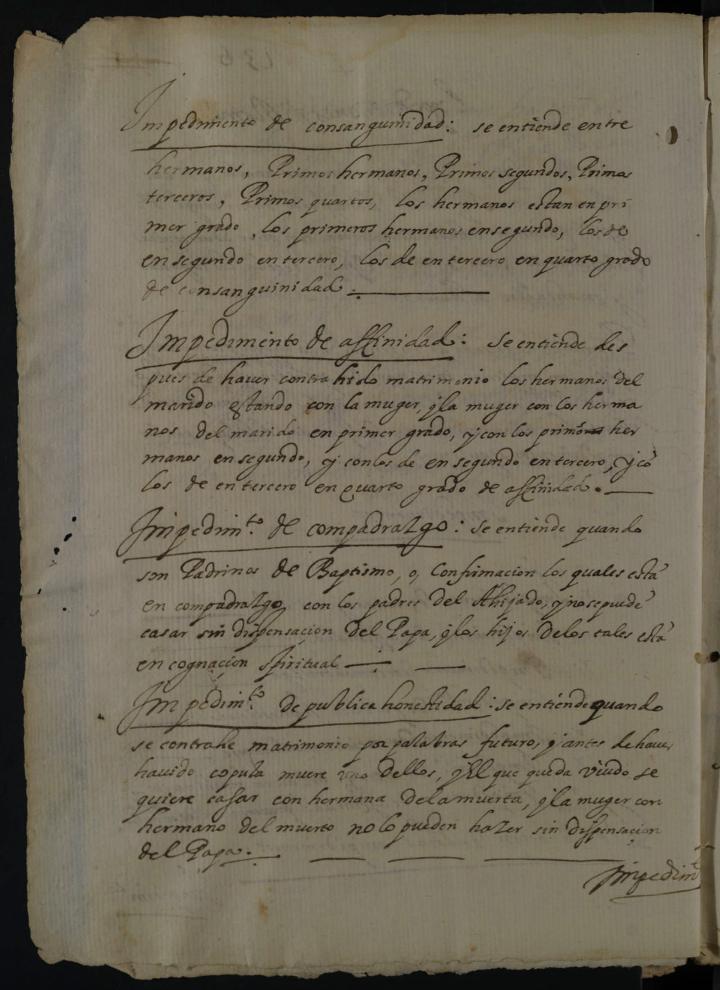 Impedimento de consanguinidad: se entiende entre
hermanos, Primos hermanos, Primos segundos, Primos
terceros, Primos quartos, los hermanos estan en pri
mer grado, los primeros hermanos en segundo, los de
en segundo en tercero, los de en tercero en quarto grado
de consanguinidad.
Impedimento de affinidad: se entiende des
pues de haver contrahido matrimonio los hermanos del
marido estando con la muger, y la muger con los herma
nos del marido en primer grado, y con los primos her
manos en segundo, y con los de en segundo en tercero, y cõ
los de en tercero en quarto grado de affinidad.
Impedim.to de compadrazgo: se entiende quando
son Padrinos de Baptismo, o, Confirmacion los quales està
en compadrazgo con los padres del Ahijado, y no se puedẽ
casar sin dispensacion del Papa, y los hijos de los tales està
en cognacion spiritual
Impedim.to de publica honestidad: se entiende quando
se contrahe matrimonio por palabras futuro, y antes de haver
havido copula muere uno dellos, y El que queda viudo se
quiere cassar con hermana de la muerta, y la muger con
hermano del muerto no lo pueden hazer sin dispensacion
del Papa.
Impedim.t